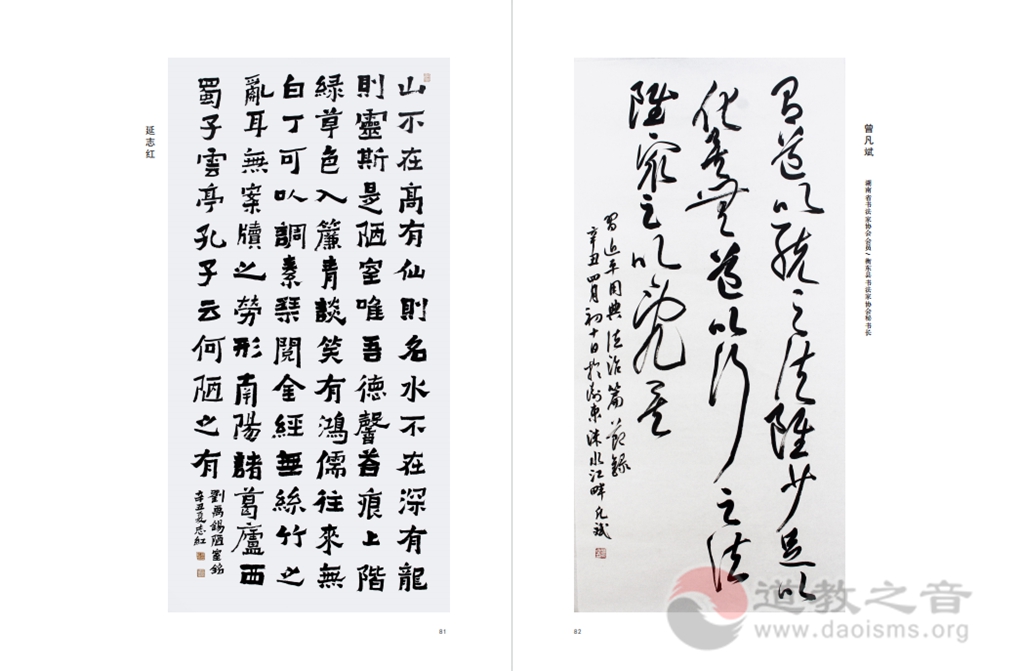 延志红
山不在高有仙則名水不在深有龍
則靈斯是陋室唯吾德馨苔痕上階
緑草色入簾青談笑有鴻儒往來無
白丁可以調素琴閱金經無絲竹之
亂耳無案牘之勞形南陽諸葛廬西
蜀子雲亭孔子云何陋之有
劉禹錫陋室銘
辛丑夏志紅
81
曾凡斌
湖南省书法家协会会员/衡东县书法家协会秘书长
有道以統之法雖少足以
化矣無道以行之法
雖衆足以亂矣
習近平用典法治篇節録
辛丑四月初十日於衡東洣水江畔凡斌
82
道教之音
www.daoisms.org